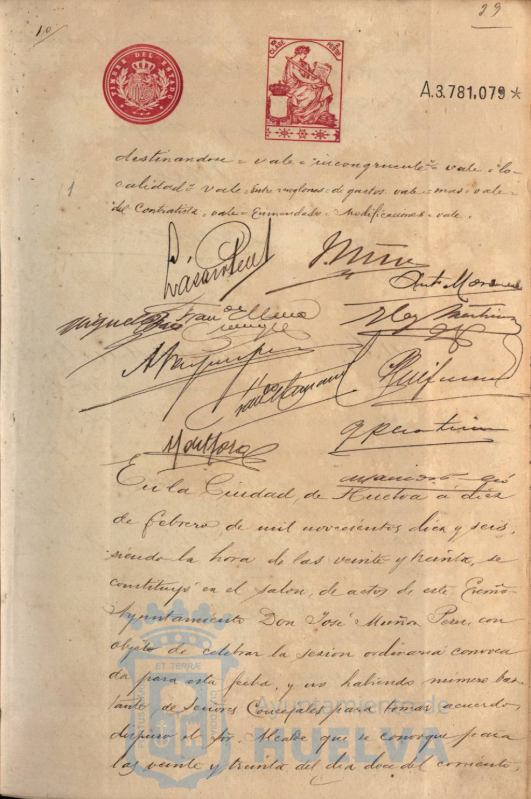 29
10
TIMBRE DEL ESTADO
CLASE
PESETA
A.3.781,079*
destinandose = vale = incongruente = vale = lo-
1
calidad = vale = Entre renglones = de gastos = vale = mas = vale =
del Contratista = vale = Enmendado = Modificaciones = vale.
Ant. Moreno
Miguel
Montoro
En la Ciudad de Huelva á diez
de febrero de mil novecientos diez y seis,
siendo la hora de las veinte y treinta, se
constituyó en el salon de actos de este Excmo.
Ayuntamiento Don José Muñoz Perez, con
objeto de celebrar la sesion ordinaria convoca-
da para esta fecha, y no habiendo número bas-
tante de Señores Concejales para tomar acuerdo
dispuso el Sr. Alcalde que se convoque para
las veinte y treinta del dia doce del corriente,
Ayuntamiento de
HUELVA